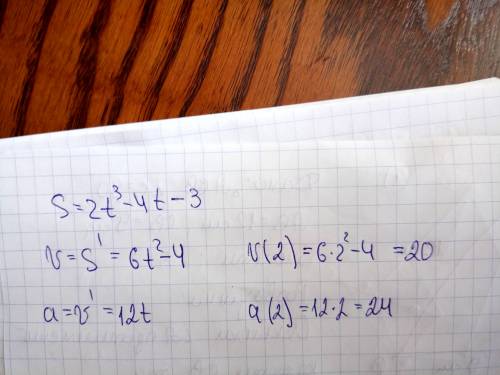 S=2t³-4t-3
v=S'=6t²-4 v(2)=6·2²-4 =20
a=v'=12t a(2)=12·2=24